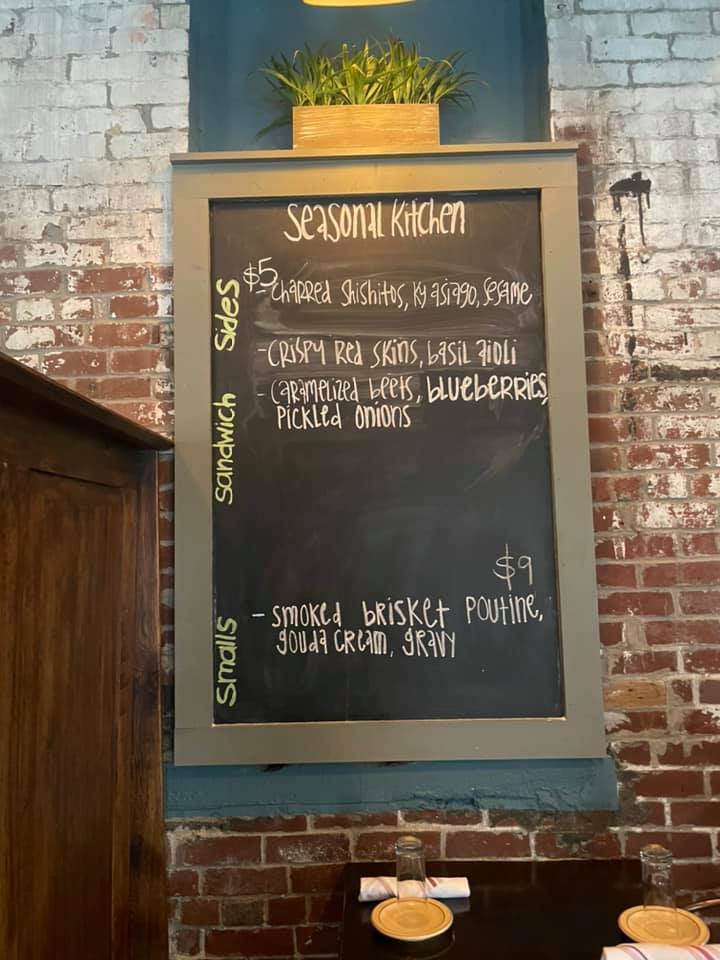 Seasonal Kitchen
Sandwich Sides
$5
- Charred Shishitos, Ky asiago, Sesame
- Crispy Red Skins, basil aioli
- Caramelized beets, blueberries,
Pickled Onions
Smalls
$9
- Smoked brisket Poutine,
gouda cream, gravy